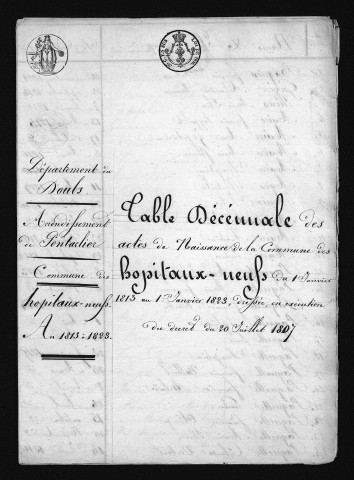 Département du
Doubs
Arrondissement
de Pontarlier
Commune des
hopitaux-neufs.
An 1813 = 1823.
Table Décénnale des
actes de Naissance de la Commune des
hopitaux-neufs du 1er Janvier
1813 au 1er Janvier 1823, dressée, en execution
du decret du 20 Juillet 1807